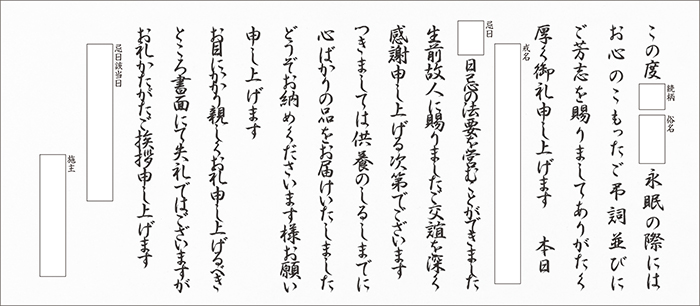 この度 続柄 俗名 永眠の際には
お心のこもったご弔詞並びに
ご芳志を賜りましてありがたく
厚く御礼申し上げます 本日
戒名
忌日 日忌の法要を営むことができました
生前故人に賜りましたご交誼を深く
感謝申し上げる次第でございます
つきましては供養のしるしまでに
心ばかりの品をお届けいたしました
どうぞお納めくださいます様お願い
申し上げます
お目にかかり親しくお礼申し上げるべき
ところ書面にて失礼ではございますが
お礼かたがたご挨拶申し上げます
忌日該当日
施主